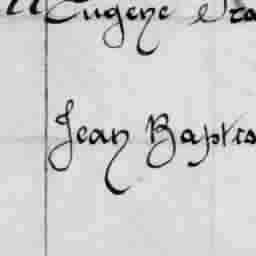 Eugene
Jean Baptis